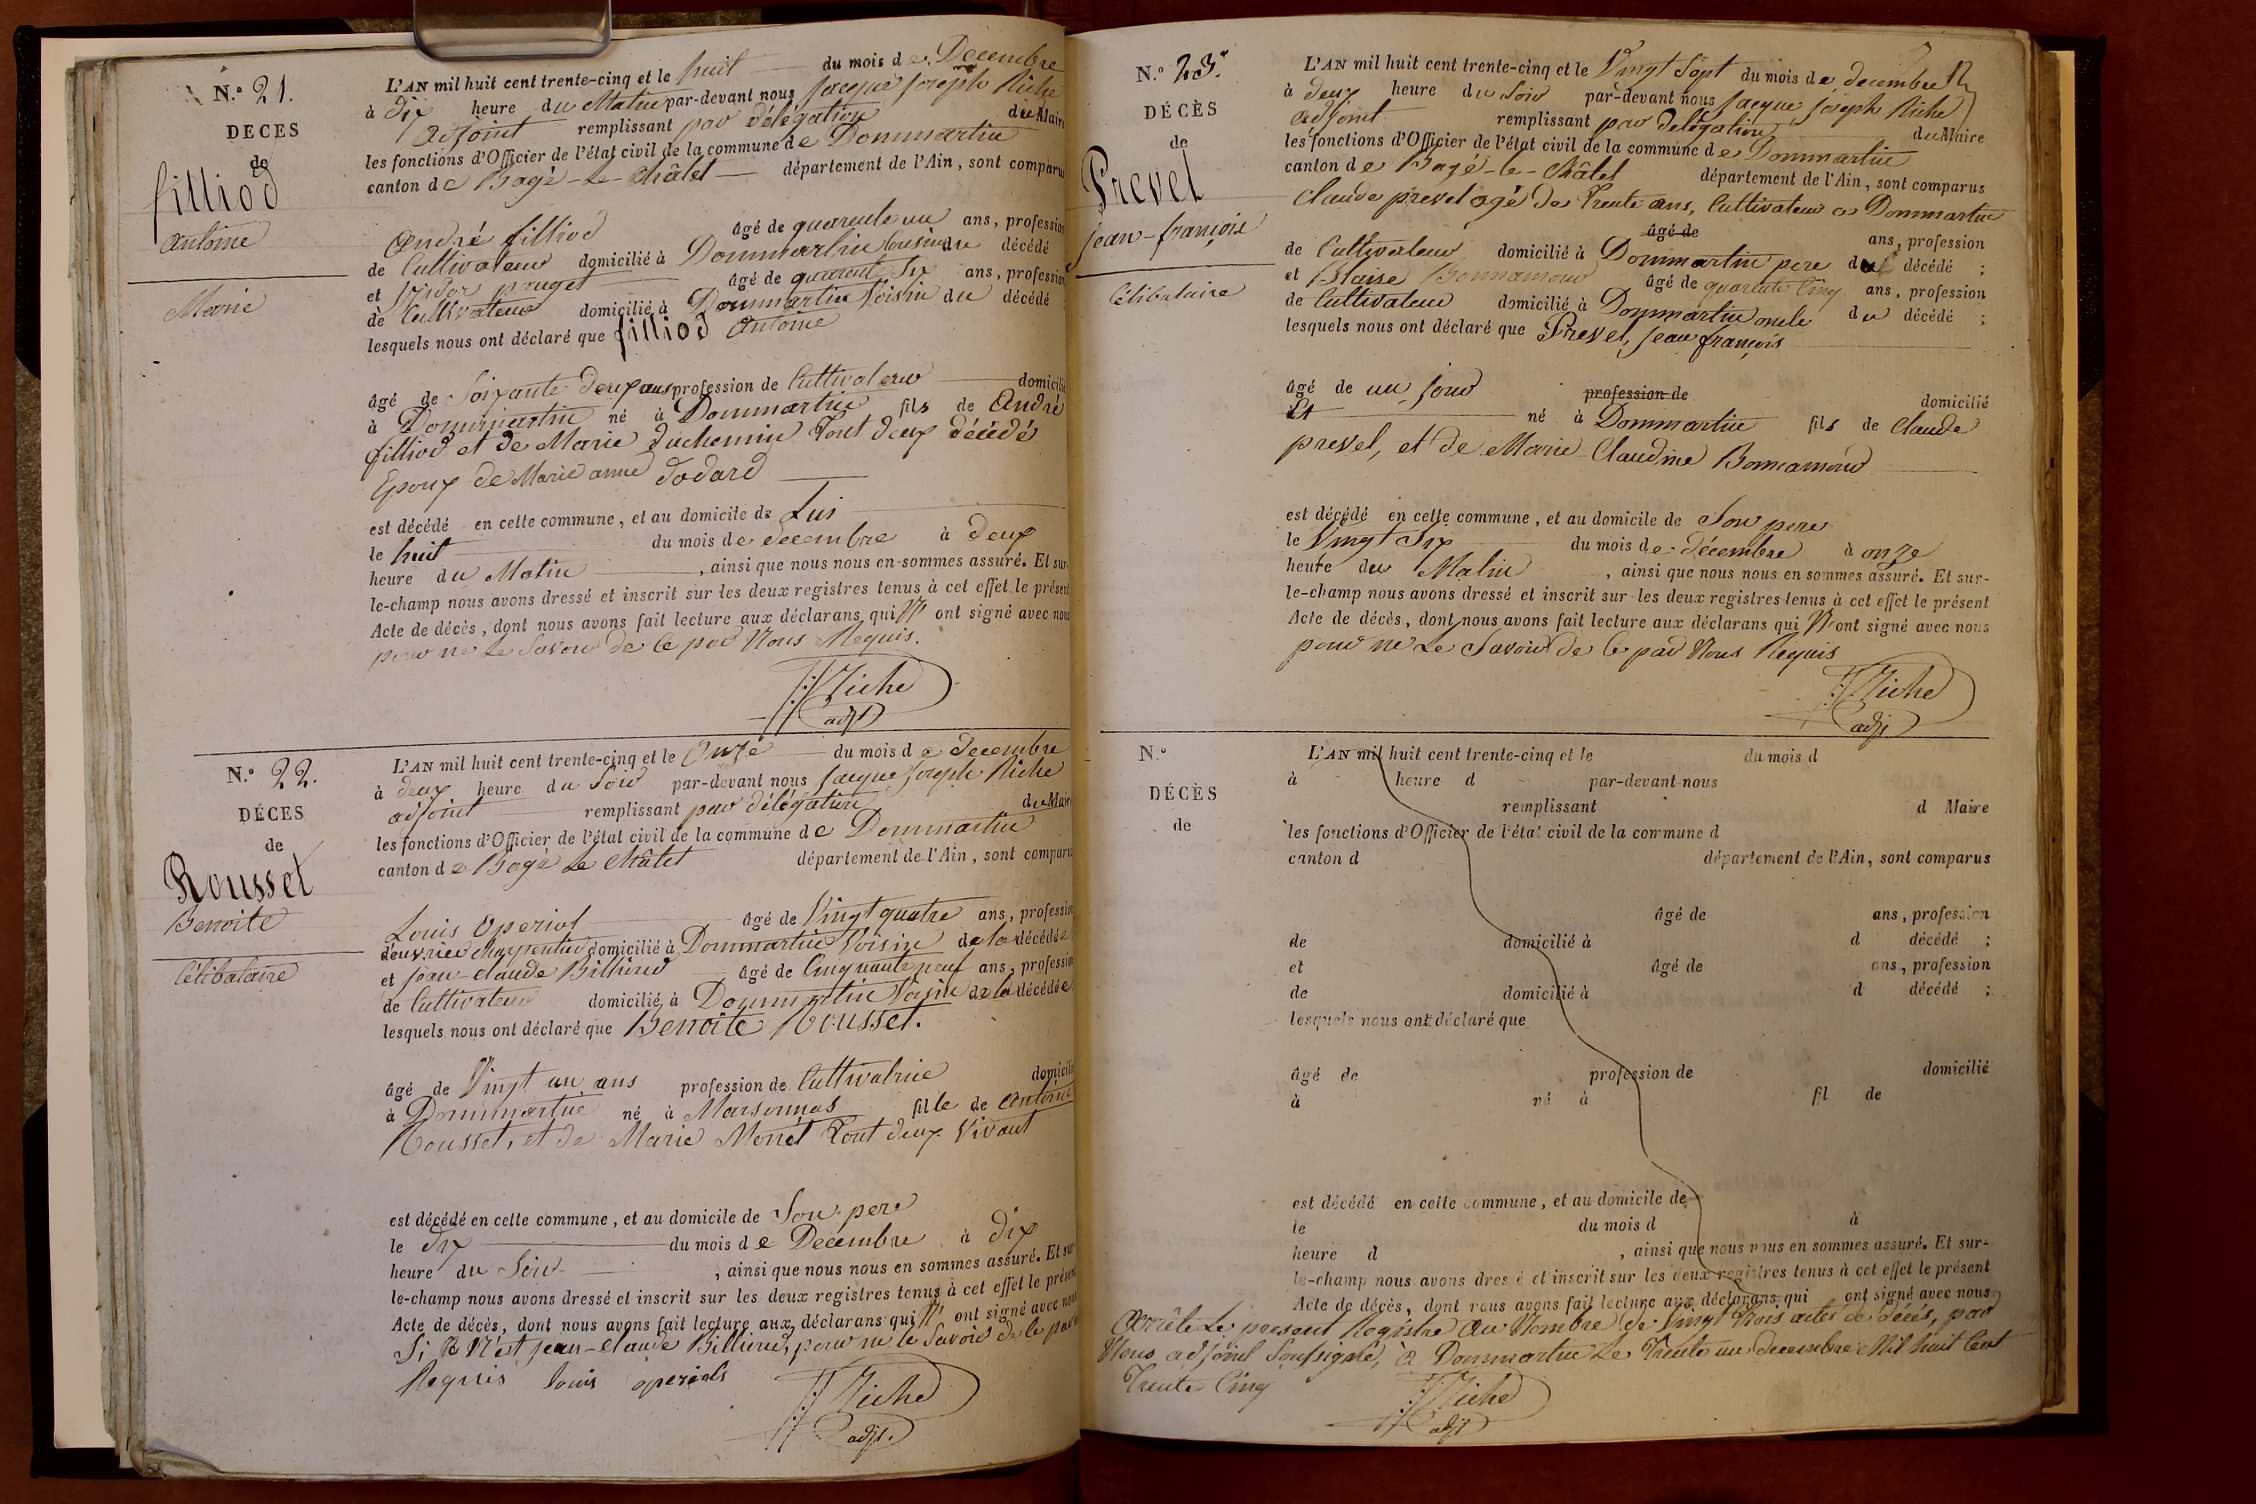 N.º 21.
DECES
de
filliod
antoine
Marié
L'AN mil huit cent trente-cinq et le huit du mois de Decembre
à dix heure du Matin par-devant nous Jacque Joseph Riche
adjoint remplissant par délégation du Maire
les fonctions d'Officier de l'état civil de la commune de Dommartin
canton de Bagé-Le-Châtel département de l'Ain, sont comparus
André filliod âgé de quarente un ans, profession
de Cultivateur domicilié à Dommartin Cousin du décédé
et pouget âgé de quarante Six ans, profession
de Cultivateur domicilié à Dommartin Voisin du décédé
lesquels nous ont déclaré que filliod Antoine
âgé de Soixante Deux ans profession de Cultivateur domicilié
à Dommartin né à Dommartin fils de André
filliod et de Marie Duchemin Tout deux décédé
Epoux de Marie anne Godard
est décédé en cette commune, et au domicile de Lui
le huit du mois de decembre à deux
heure du Matin, ainsi que nous nous en sommes assuré. Et sur-
le-champ nous avons dressé et inscrit sur les deux registres tenus à cet effet le présent
Acte de décès, dont nous avons fait lecture aux déclarans qui N' ont signé avec nous
pour ne Le Savoir de Ce par Nous Requis.
Riche
adjt
N.º 22.
DÉCES
de
Rousset
Benoite
Célibataire
L'AN mil huit cent trente-cinq et le Onze du mois de decembre
à deux heure du Soir par-devant nous Jacque Joseph Riche
adjoint remplissant par délégation du Maire
les fonctions d'Officier de l'état civil de la commune de Dommartin
canton de Bagé Le Châtel département de l'Ain, sont comparus
Louis Operiol âgé de Vingt quatre ans, profession
d'ouvrier charpentier domicilié à Dommartin Voisin de la décédée
et Jean-claude Billioud âgé de Cinquante neuf ans, profession
de Cultivateur domicilié à Dommartin Voisin de la décédée
lesquels nous ont déclaré que Benoite Rousset.
âgé de Vingt un ans profession de Cultivatrice domicilié
à Dommartin né à Marsonnas fille de Antoine
Rousset, et de Marie Monet Tout deux Vivant
est décédé en cette commune, et au domicile de Son pere
le dix du mois de Decembre à dix
heure du Soir, ainsi que nous nous en sommes assuré. Et sur-
le-champ nous avons dressé et inscrit sur les deux registres tenus à cet effet le présent
Acte de décès, dont nous avons fait lecture aux déclarans qui N' ont signé avec nous
Si Ce N'est Jean-claude Billioud, pour ne le Savoir de Ce par
Requis Louis operiols
Riche
adjt.
N.º 23.
DÉCÈS
de
Prevel
Jean-françois
Célibataire
L'AN mil huit cent trente-cinq et le Vingt Sept du mois de decembre
à deux heure du Soir par-devant nous Jacque Joseph Riche
adjoint remplissant par delégation du Maire
les fonctions d'Officier de l'état civil de la commune de Dommartin
canton de Bagé-le-Châtel département de l'Ain, sont comparus
Claude prevel agé de Trente ans, Cultivateur a Dommartin
âgé de ans, profession
de Cultivateur domicilié à Dommartin pere du décédé ;
et Blaise Bonnamour âgé de quarente Cinq ans, profession
de Cultivateur domicilié à Dommartin oncle du décédé ;
lesquels nous ont déclaré que Prevel, Jean françois
âgé de un Jour profession de domicilié
né à Dommartin fils de Claude
prevel, et de Marie-Claudine Bonnamour
est décédé en cette commune, et au domicile de Son pere
le Vingt Six du mois de décembre à onze
heure du Matin, ainsi que nous nous en sommes assuré. Et sur-
le-champ nous avons dressé et inscrit sur les deux registres tenus à cet effet le présent
Acte de décès, dont nous avons fait lecture aux déclarans qui N'ont signé avec nous
pour ne Le Savoir de Ce par Nous Requis
Riche
adjt
N.º
DÉCÈS
de
L'AN mil huit cent trente-cinq et le du mois d
à heure d par-devant nous
remplissant d Maire
les fonctions d'Officier de l'état civil de la commune d
canton d département de l'Ain, sont comparus
âgé de ans, profession
de domicilié à d décédé ;
et âgé de ans, profession
de domicilié à d décédé ;
lesquels nous ont déclaré que
âgé de profession de domicilié
à né à fil de
est décédé en cette commune, et au domicile de
le du mois d à
heure d , ainsi que nous nous en sommes assuré. Et sur-
le-champ nous avons dressé et inscrit sur les deux registres tenus à cet effet le présent
Acte de décès, dont nous avons fait lecture aux déclarans qui ont signé avec nous
Arrête Le present Registre au Nombre de Vingt trois actes de décés, par
Nous adjoint Soussigné, à Dommartin Le Trente un decembre Mil huit Cent
Trente Cinq
Riche
adjt